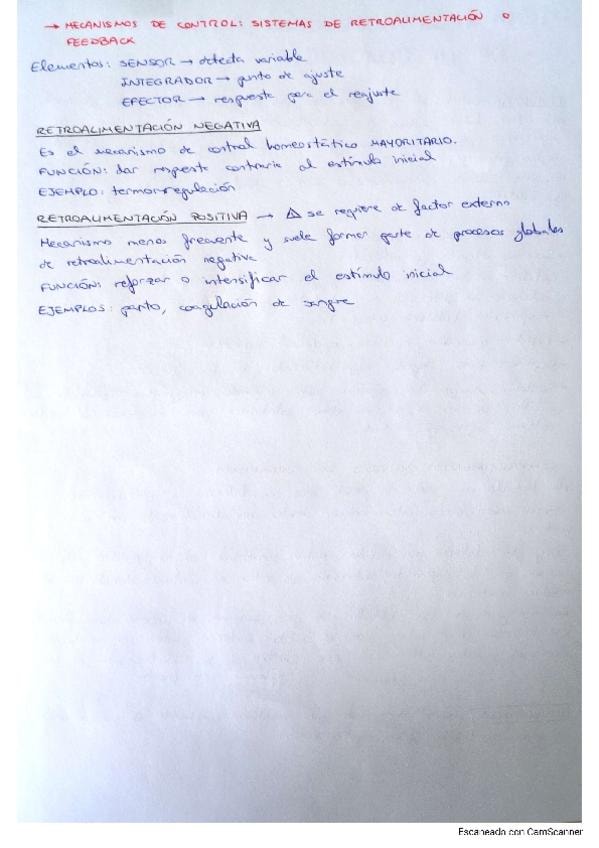 → MECANISMOS DE CONTROL: SISTEMAS DE RETROALIMENTACIÓN o
FEEDBACK
Elementos: SENSOR → detecta variable
INTEGRADOR → punto de ajuste
EFECTOR → respuesta para el reajuste
RETROALIMENTACIÓN NEGATIVA
Es el mecanismo de control homeostático MAYORITARIO.
FUNCIÓN: dar respuesta contraria al estímulo inicial
EJEMPLO: termorregulación
RETROALIMENTACIÓN POSITIVA → ⚠ se requiere de factor externo
Mecanismo menos frecuente y suele formar parte de procesos globales
de retroalimentación negativa
FUNCIÓN: reforzar o intensificar el estímulo inicial
EJEMPLOS: parto, coagulación de sangre
Escaneado con CamScanner